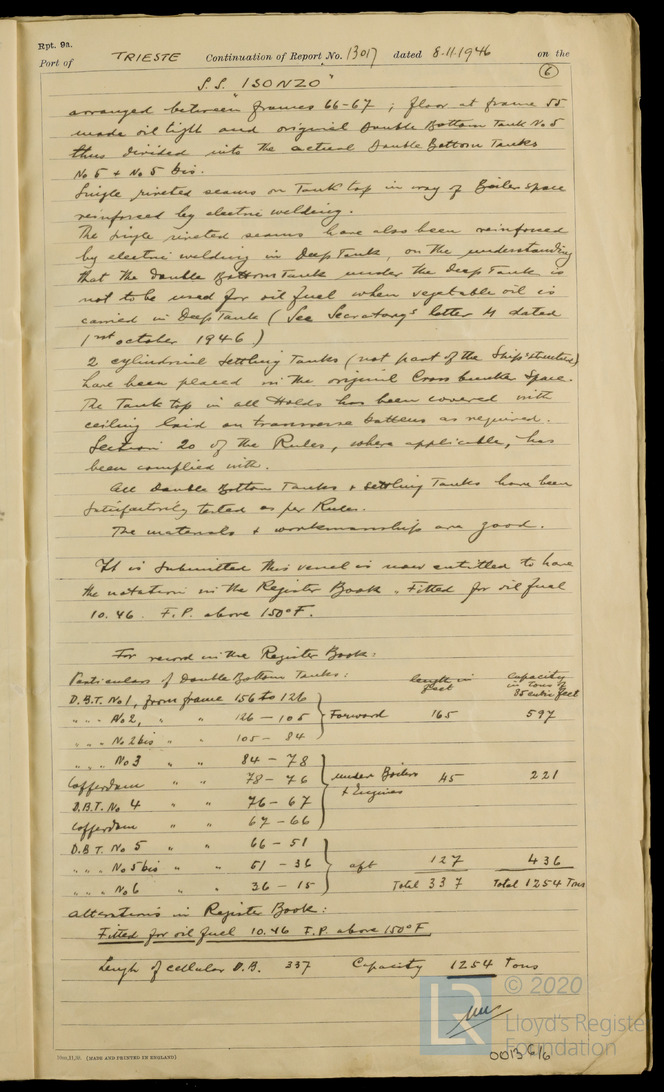 Rpt. 9a.
Port of TRIESTE Continuation of Report No. 13017 dated 8.11.1946 on the
6
S.S. "ISONZO"
arranged between frames 66-67 ; floor at frame 55
made oil tight and original Double Bottom Tank No 5
thus divided into the actual Double Bottom Tanks
No 5 & No 5 bis.
Single riveted seams on Tank top in way of Boiler space
reinforced by electric welding.
The single riveted seams have also been reinforced
by electric welding in Deep Tank, on the understanding
that the Double Bottom Tank under the Deep Tank is
not to be used for oil fuel when vegetable oil is
carried in Deep Tank (See Secretary's letter M dated
1rst october 1946)
2 cylindrical Settling Tanks (not part of the Ship's structure)
have been placed in the original Cross bunker Space.
The Tank top in all Holds has been covered with
ceiling laid on transverse battens as required.
Section 20 of the Rules, where applicable, has
been complied with.
All Double Bottom Tanks & settling Tanks have been
satisfactorily tested as per Rules.
The materials & workmanship are good.
It is submitted this vessel is now entitled to have
the notation in the Register Book "Fitted for oil fuel
10.46. F.P. above 150°F.
For record in the Register Book:
Particulars of Double Bottom Tanks: length in feet capacity in tons of 35 cubic feet
D.B.T. No 1, from frame 156 to 126
" " " No 2, " " 126 - 105 Forward 165 597
" " " No 2 bis " " 105 - 84
" " " No 3 " " 84 - 78
Cofferdam " " 78 - 76 under Boilers 45 221
D.B.T. No 4 " " 76 - 67 & Engines
Cofferdam " " 67 - 66
D.B.T. No 5 " " 66 - 51
" " " No 5 bis " " 51 - 36 aft 127 436
" " " No 6 " " 36 - 15 Total 337 Total 1254 Tons
alterations in Register Book:
Fitted for oil fuel 10.46 F.P. above 150°F
Length of cellular D.B. 337 Capacity 1254 Tons
© 2020
LR
Lloyd's Register
Foundation
[MADE AND PRINTED IN ENGLAND]